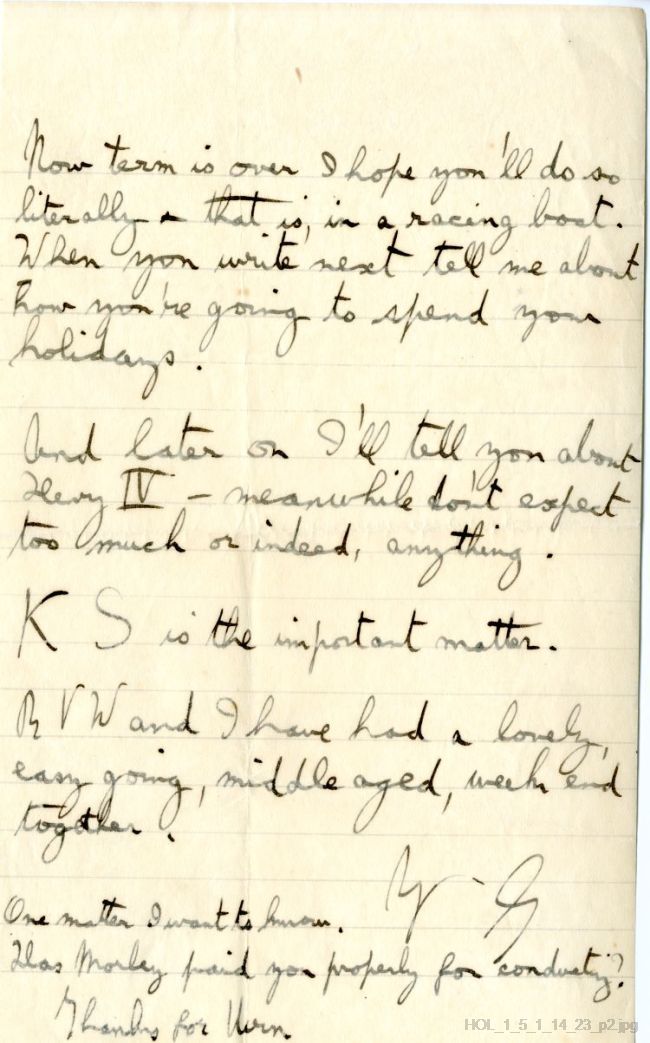 Now term is over I hope you'll do so
literally - that is, in a racing boat.
When you write next tell me about
how you're going to spend your
holidays.
And later on I'll tell you about
Henry IV - meanwhile don't expect
too much or indeed, anything.
K S is the important matter.
R V W and I have had a lovely,
easy going, middle aged, week end
together.
Y - G
One matter I want to know.
Has Morley paid you properly for conducting?
Thanks for
HOL_1_5_1_14_23_p2.jpg